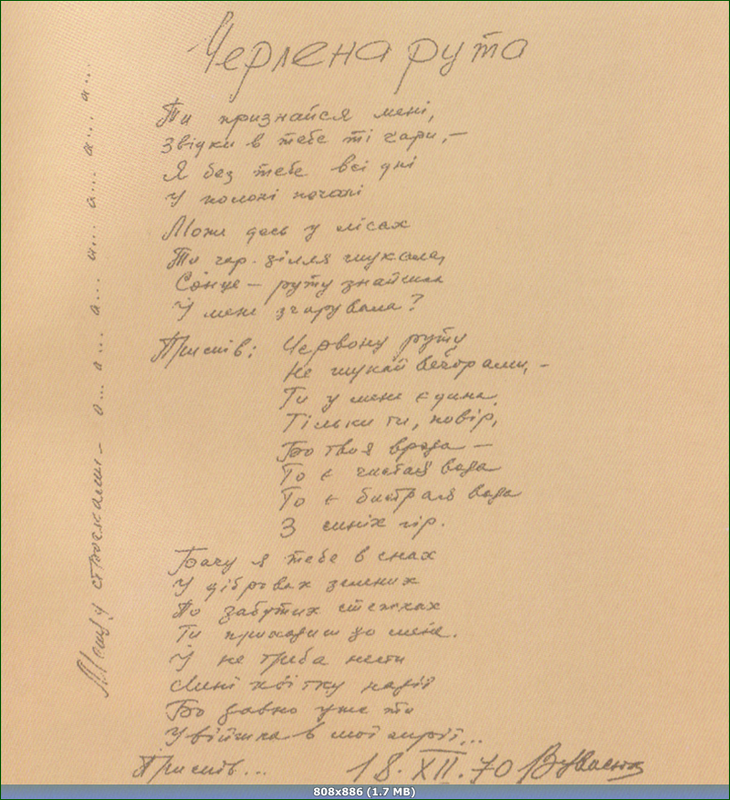 Червона рута
Ти признайся мені,
Звідки в тебе ті чари,–
Я без тебе всі дні
У полоні печалі
Може десь у лісах
Ти чар. зілля шукала,
Сонце – руту знайшла
Й мене зчарувала?
Приспів: Червону руту
Не шукай вечорами,–
Ти у мене єдина,
Тільки ти, повір,
Бо твоя врода –
То є чистая вода
То є бистрая вода
З синіх гір.
Бачу я тебе в снах
У дібровах зелених
По забутих стежках
Ти приходиш до мене.
Й не треба нести
Мені квітку надії
Бо давно уже ти
Увійшла в мої мрії...
Приспів...
18.XII.70
Между строчками – а... а... а... а... а... а... а...
808x886 (1.7 MB)